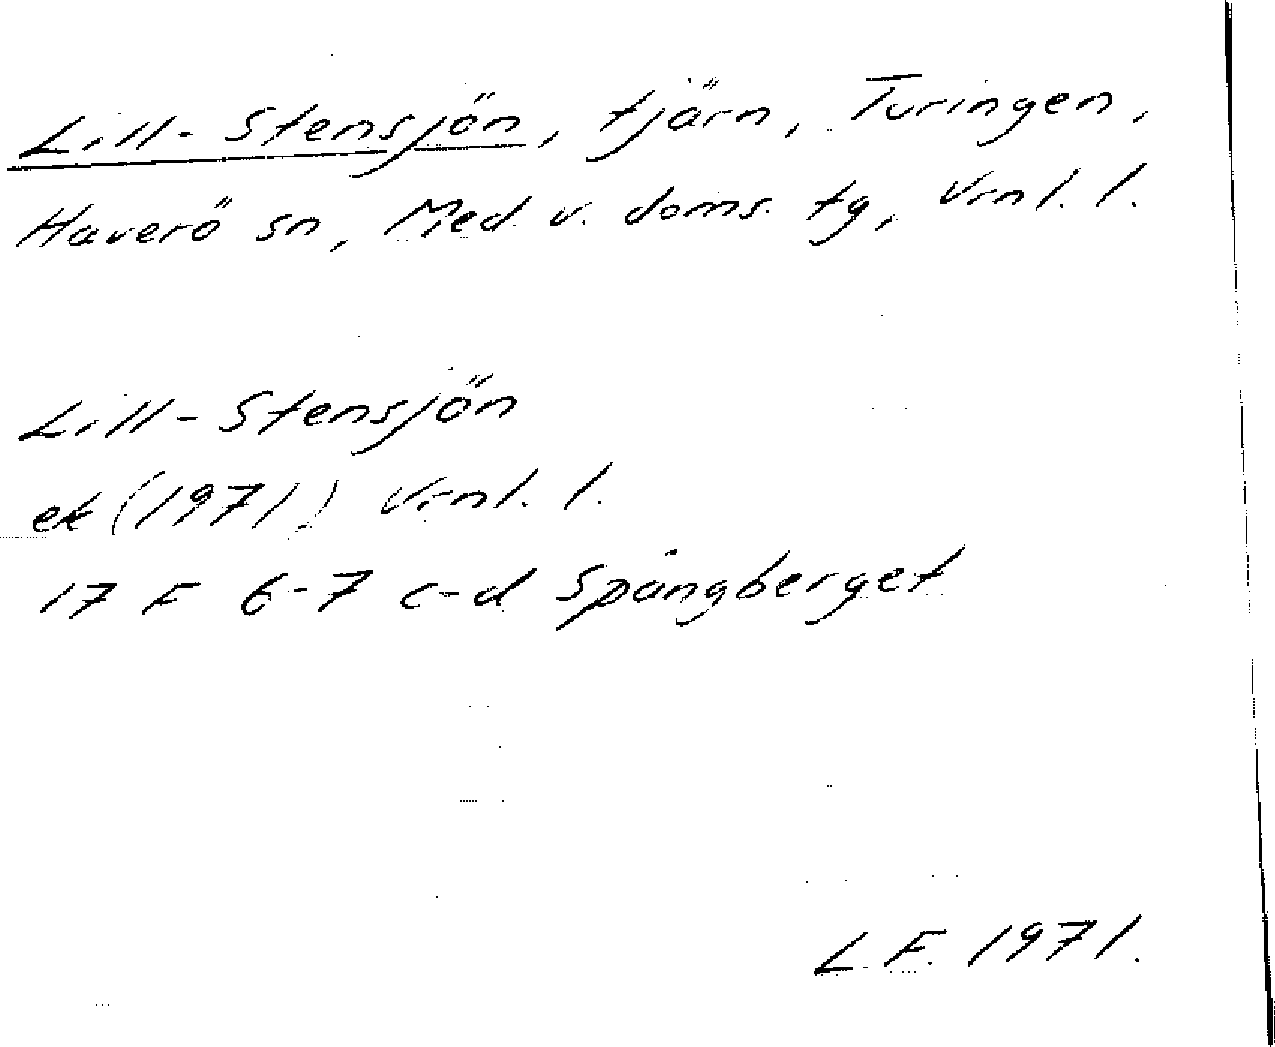 Lill-Stensjön, tjärn, Turingen,
Haverö sn, Med. v. doms. tg, Vrnl. l.
Lill-Stensjön
ek (1971) Vrnl. l.
17 F 6-7 c-d Spångberget
L F. 1971.